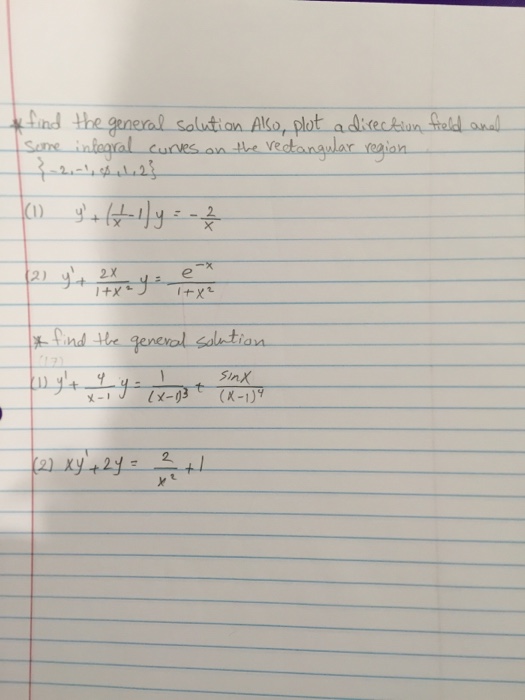 * find the general solution Also, plot a direction field and
some integral curves on the rectangular region
{-2,-1, ,1,2}
(1) y' + (1/x - 1) y = - 2/x
(2) y' + 2x/(1+x²) y = e^(-x)/(1+x²)
* find the general solution
(1) y' + 4/(x-1) y = 1/(x-1)³ + sinx/(x-1)⁴
(2) xy' + 2y = 2/x² + 1